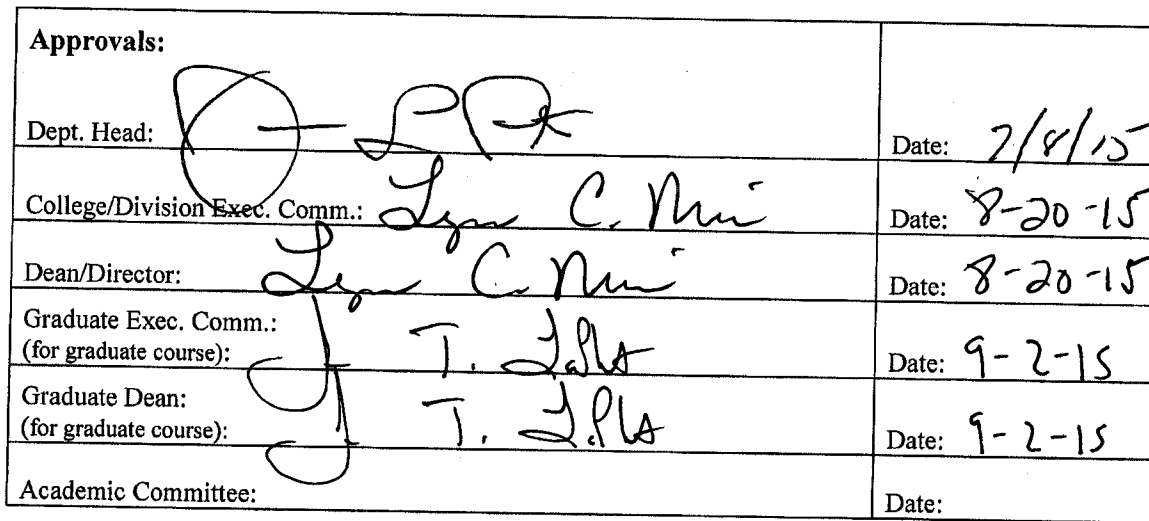 Approvals:
Dept. Head: Date: 7/8/15
College/Division Exec. Comm.: C. Date: 8-20-15
Dean/Director: C. Date: 8-20-15
Graduate Exec. Comm.:
(for graduate course): T. Date: 9-2-15
Graduate Dean:
(for graduate course): T. Date: 9-2-15
Academic Committee: Date: